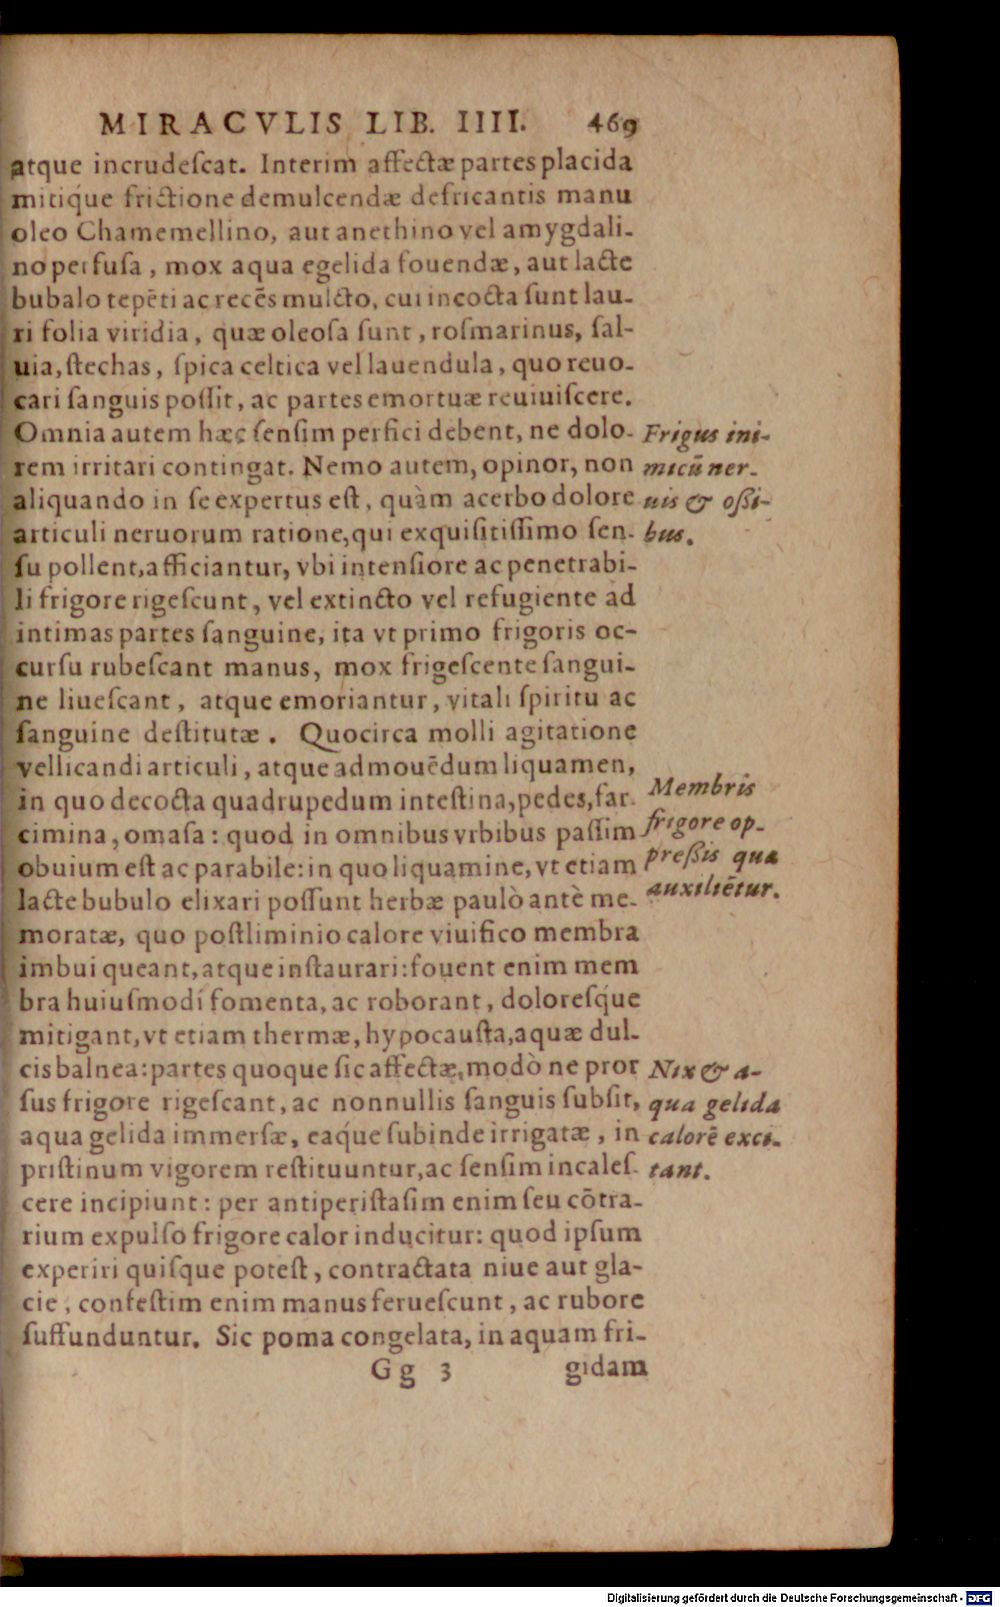 MIRACVLIS LIB. IIII. 469
atque incrudeſcat. Interim affectæ partes placida
mitiq́ue frictione demulcendæ defricantis manu
oleo Chamemellino, aut anethino vel amygdali-
no perfuſa, mox aqua egelida fouendæ, aut lacte
bubalo tepēti ac recēs mulcto, cui incocta ſunt lau-
ri folia viridia, quæ oleoſa ſunt, roſmarinus, ſal-
uia, ſtechas, ſpica celtica vel lauendula, quo reuo-
cari ſanguis poſſit, ac partes emortuæ reuiuiſcere.
Omnia autem hæc ſenſim perfici debent, ne dolo-
rem irritari contingat. Nemo autem, opinor, non
aliquando in ſe expertus eſt, quàm acerbo dolore
articuli neruorum ratione, qui exquiſitiſſimo ſen-
ſu pollent, afficiantur, vbi intenſiore ac penetrabi-
li frigore rigeſcunt, vel extincto vel refugiente ad
intimas partes ſanguine, ita vt primo frigoris oc-
curſu rubeſcant manus, mox frigeſcente ſangui-
ne liueſcant, atque emoriantur, vitali ſpiritu ac
ſanguine deſtitutæ. Quocirca molli agitatione
vellicandi articuli, atque admouēdum liquamen,
in quo decocta quadrupedum inteſtina, pedes, far-
cimina, omaſa: quod in omnibus vrbibus paſſim
obuium eſt ac parabile: in quo liquamine, vt etiam
lacte bubulo elixari poſſunt herbæ paulò antè me-
moratæ, quo poſtliminio calore viuifico membra
imbui queant, atque inſtaurari: fouent enim mem
bra huiuſmodi fomenta, ac roborant, doloreſq́ue
mitigant, vt etiam thermæ, hypocauſta, aquæ dul-
cis balnea: partes quoque ſic affectæ, modò ne pror
ſus frigore rigeſcant, ac nonnullis ſanguis ſubſit,
aqua gelida immerſæ, eaq́ue ſubinde irrigatæ, in
priſtinum vigorem reſtituuntur, ac ſenſim incaleſ-
cere incipiunt: per antiperiſtaſim enim ſeu cōtra-
rium expulſo frigore calor inducitur: quod ipſum
experiri quiſque poteſt, contractata niue aut gla-
cie, confeſtim enim manus ferueſcunt, ac rubore
ſuffunduntur. Sic poma congelata, in aquam fri-
Gg 3 gidam
Frigus ini-
micū ner-
uis & oßi-
bus.
Membris
frigore op-
preßis qua
auxiliētur.
Nix & a-
qua gelida
calorē exci-
tant.
Digitalisierung gefördert durch die Deutsche Forschungsgemeinschaft - DFG